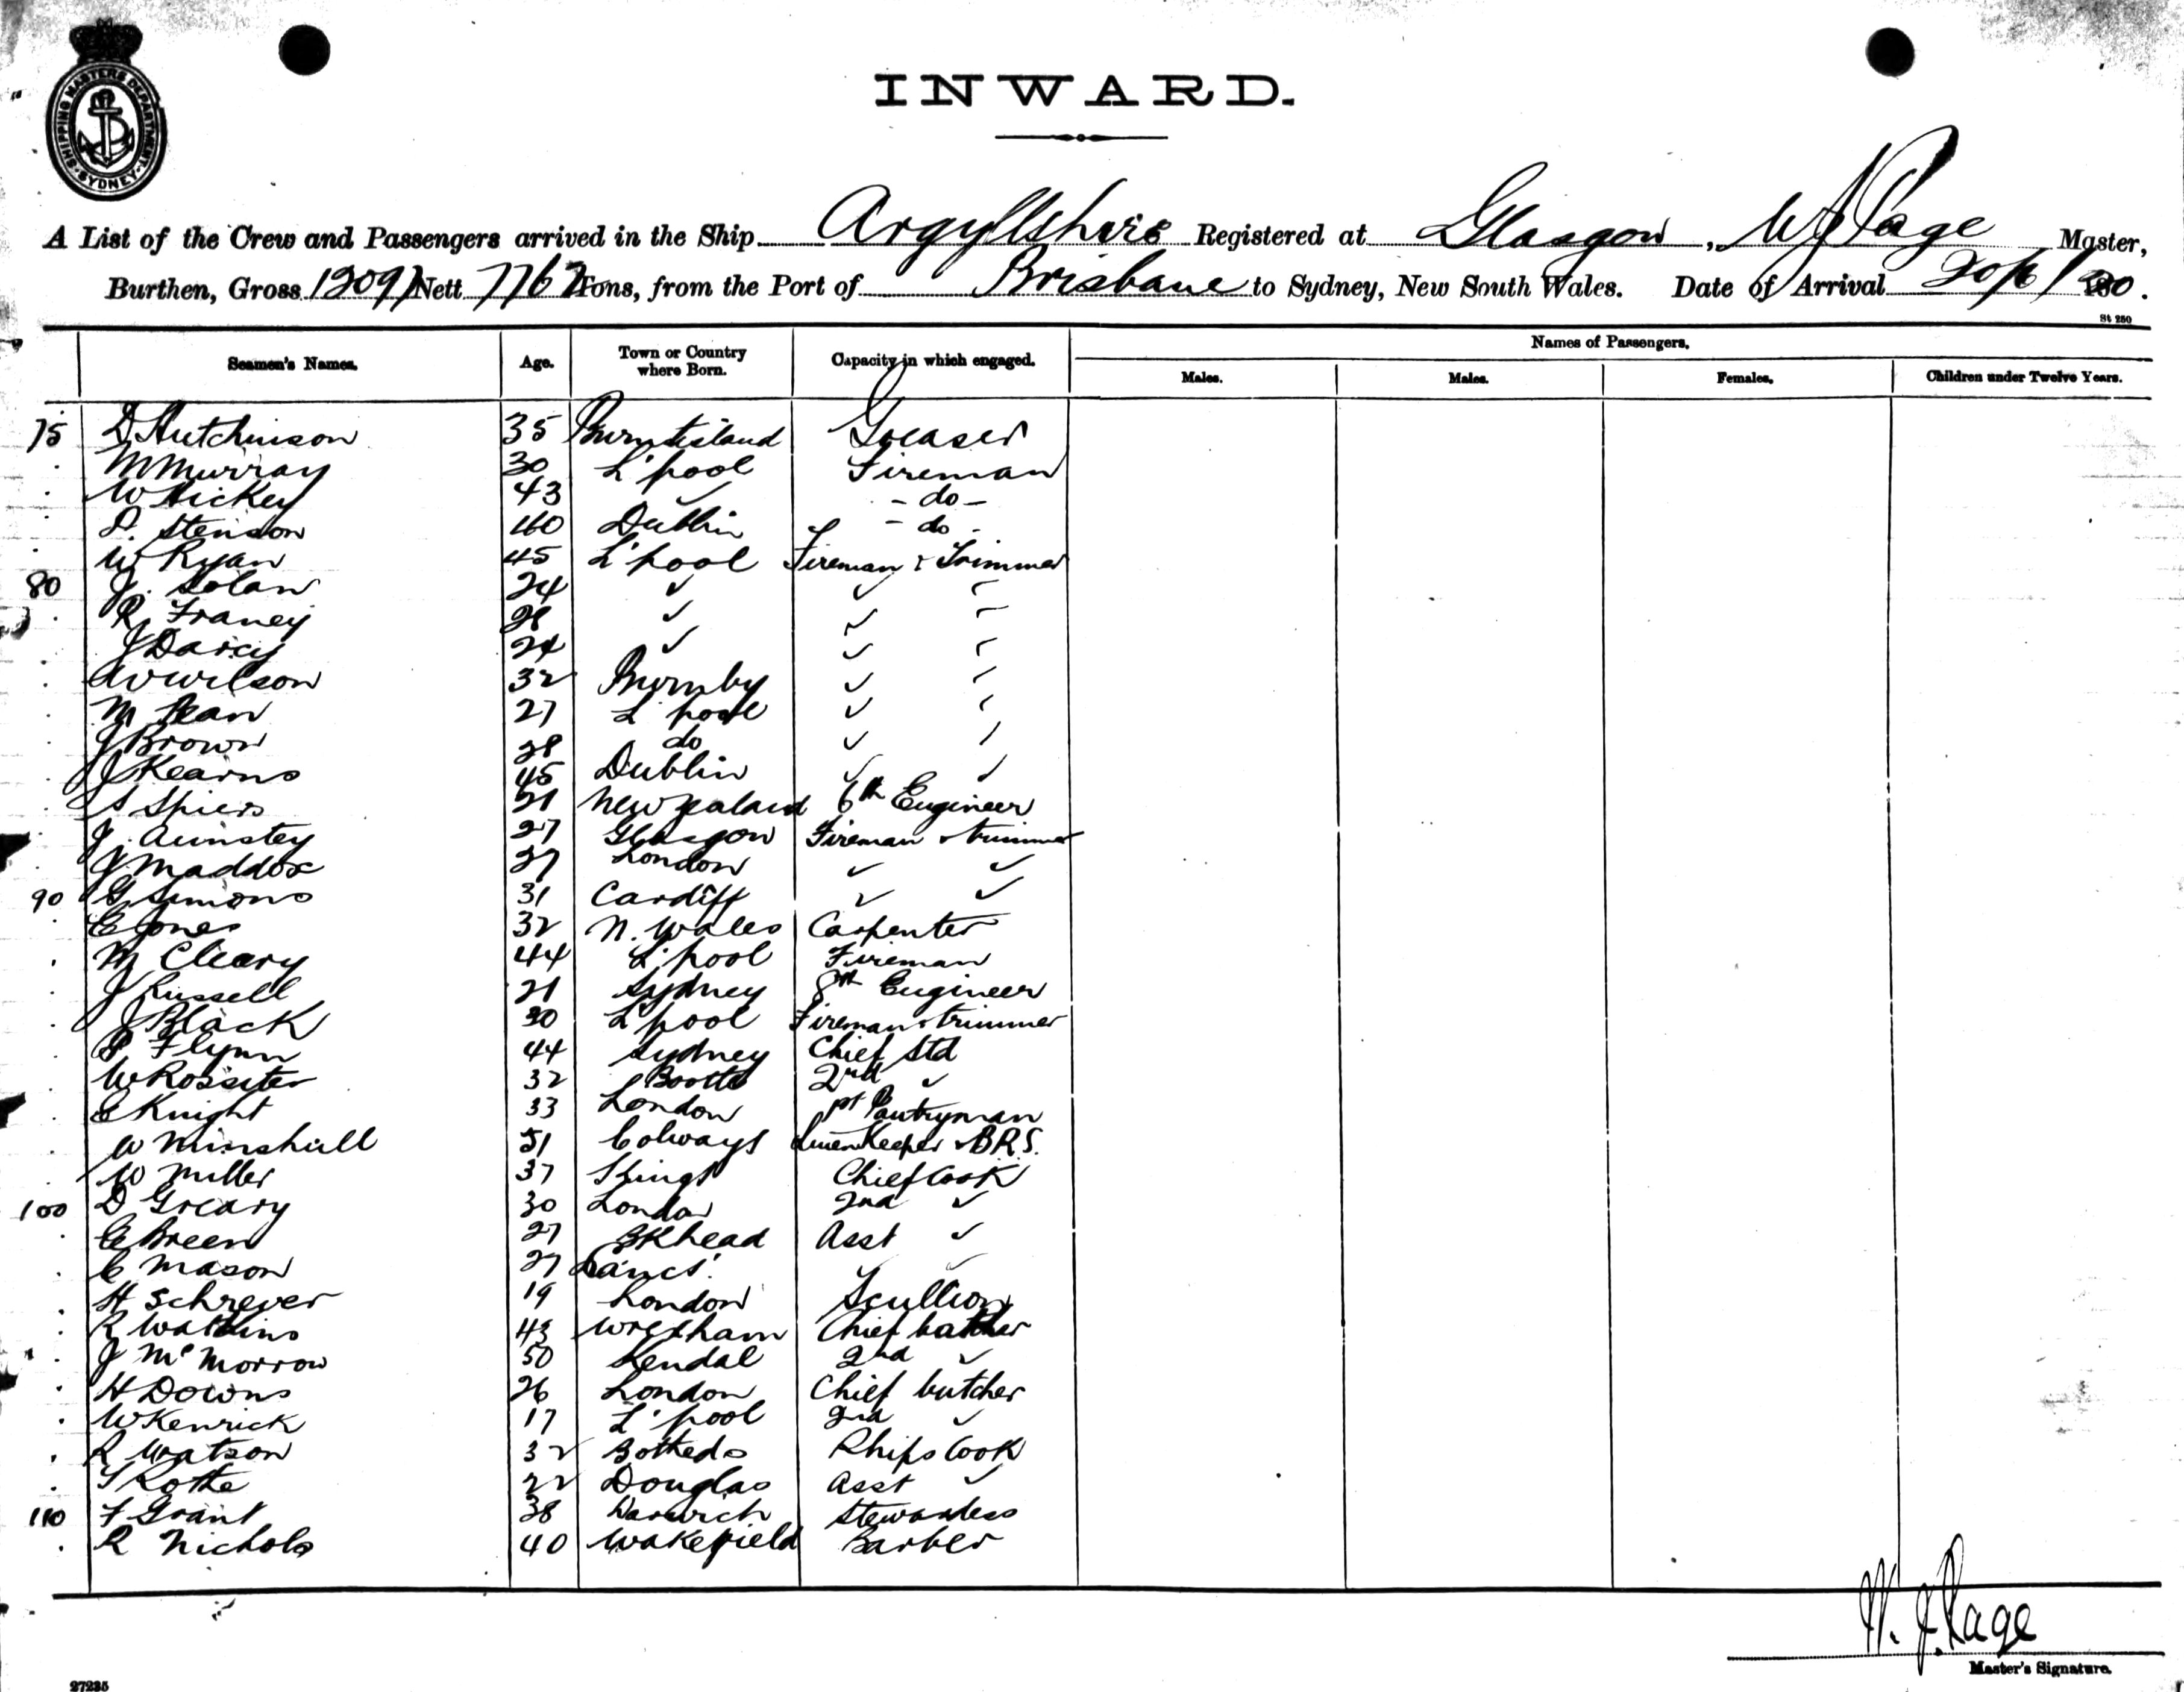 SHIPPING MASTERS DEPARTMENT
SYDNEY
INWARD.
A List of the Crew and Passengers arrived in the Ship Argyllshire Registered at Glasgow, W J Page Master,
Burthen, Gross 12097 Nett 7762 Tons, from the Port of Brisbane to Sydney, New South Wales. Date of Arrival 20/6/20.
St 250
Seamen's Names. Age. Town or Country where Born. Capacity in which engaged. Names of Passengers.
Males. Males. Females. Children under Twelve Years.
75 D Hutchinson 35 Burntisland Greaser
M Murray 30 L'pool Fireman
W Hickey 43 ✓ - do -
P. Stenson 40 Dublin - do -
W Ryan 45 L'pool Fireman & Trimmer
80 J. Dolan 24 ✓ ✓ ✓
R Franey 28 ✓ ✓ ✓
J Darcy 24 ✓ ✓ ✓
W Wilson 32 ✓ ✓
M 27 L'pool ✓ ✓
J Brown 28 do ✓ ✓
J Kearns 45 Dublin ✓ ✓
S Spiers 21 New Zealand 6th Engineer
J. 27 Glasgow Fireman & trimmer
J Maddox 27 London ✓ ✓
90 G Simons 31 Cardiff ✓ ✓
E Jones 32 N. Wales Carpenter
M Cleary 44 L'pool Fireman
J Russell 21 Sydney 8th Engineer
J Black 30 L'pool Fireman & trimmer
P Flynn 44 Sydney Chief Std
W Rossiter 32 Bootle 2nd ✓
E Knight 33 London 1st Pantryman
W Minshull 51 Linen Keeper & B.R.S.
W Miller 37 Chief Cook
100 D Greary 30 London 2nd ✓
E Breen 27 Bkhead Asst ✓
C Mason 27 Lancs. ✓
H Schrever 19 London Scullion
R Watkins 43 Wrexham Chief baker
J McMorrow 50 Kendal 2nd ✓
H Downs 26 London Chief butcher
W Kenrick 17 L'pool 2nd ✓
R Watson 32 Ships Cook
T Rothe 22 Douglas Asst ✓
110 F Grant 38 Stewardess
R Nichols 40 Wakefield Barber
W. J. Page
Master's Signature.
27235